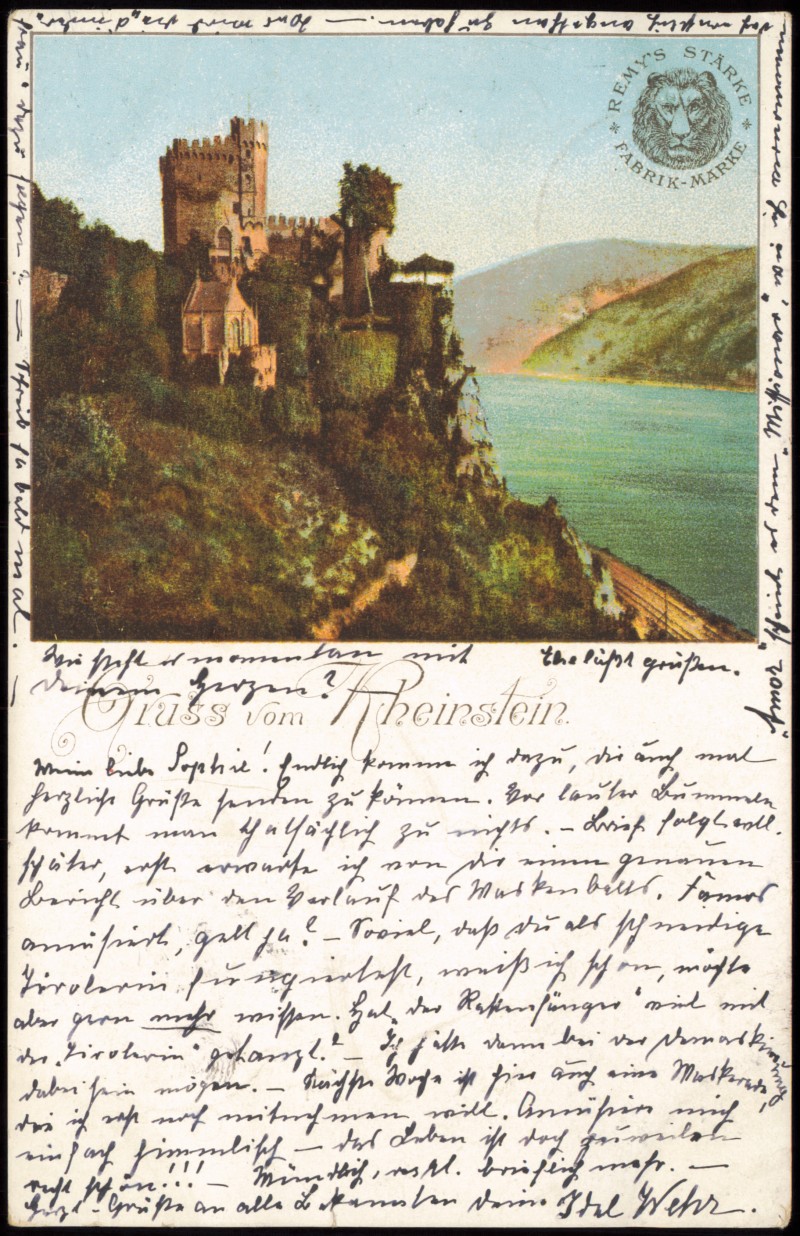 REMY'S STÄRKE
FABRIK-MARKE
Wie steht es momentan mit
deinem Herzen?
Else läßt grüßen.
Gruss vom Rheinstein.
Meine liebe Sophie! Endlich komme ich dazu, dir auch mal
herzliche Grüße senden zu können. Vor lauter Bummeln
kommt man thatsächlich zu nichts. – Brief folgt evtl.
später, erst erwarte ich von dir einen genauen
Bericht über den Verlauf des Maskenballs. Famos
amüsiert, gelt ja? – Soviel, daß du als schneidige
Tirolerin fungiertest, weiß ich schon, möchte
aber gern mehr wissen. Hat „der Rattenfänger“ viel mit
der „Tirolerin“ getanzt? – Ich hätte dann bei der Demaskierung
dabei sein mögen. – Nächste Woche ist hier auch eine Maskerade,
die ich erst noch mitnehmen will. Amüsiere mich
einfach himmlisch – das Leben ist doch zuweilen
recht schön!!! – Mündlich, restl. brieflich mehr. –
Herzl. Grüße an alle Bekannten deine Idel
frau“ dazu sagen? – Schreib ja bald mal. –